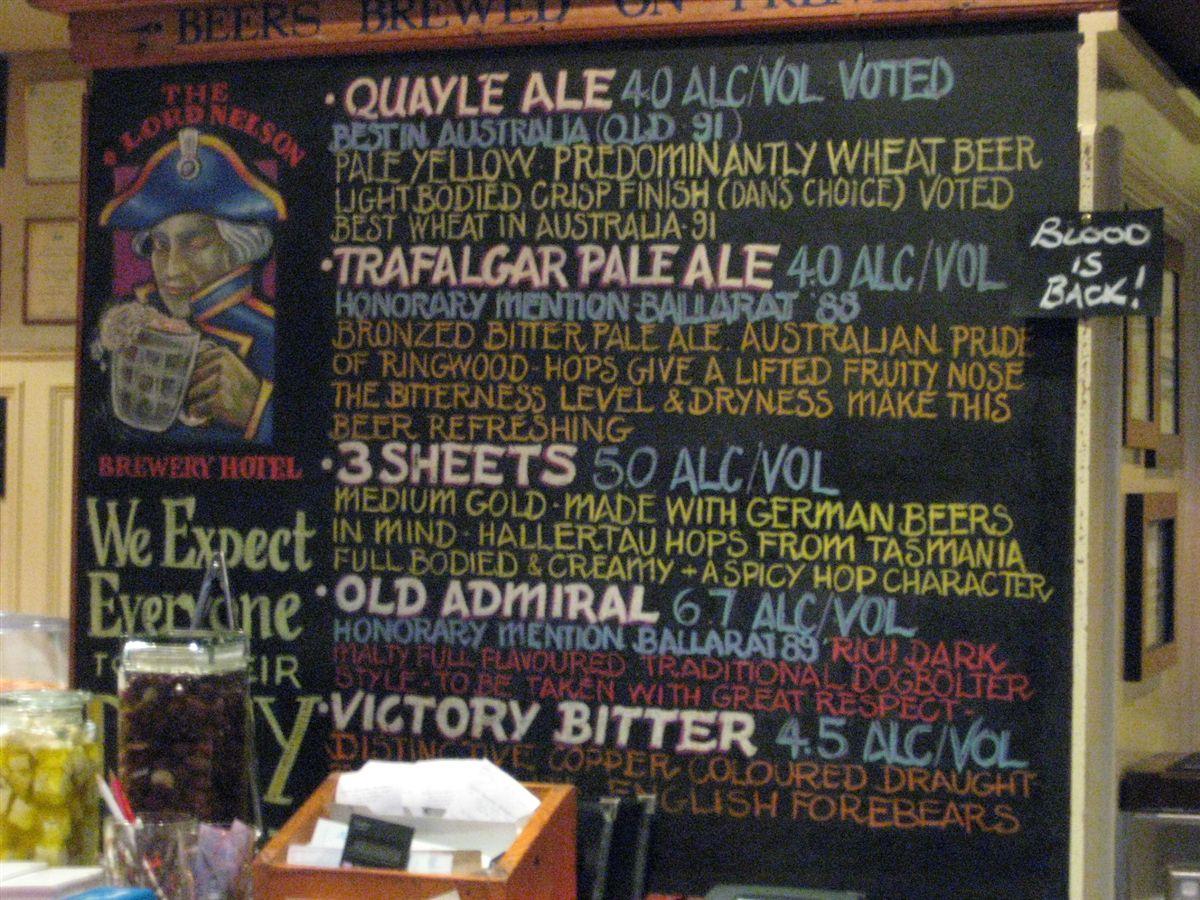 BEERS BREWED ON
THE
LORD NELSON
BREWERY HOTEL
We Expect
Everyone
• QUAYLE ALE 4.0 ALC/VOL VOTED
BEST IN AUSTRALIA (QLD 91)
PALE YELLOW · PREDOMINANTLY WHEAT BEER
LIGHT BODIED CRISP FINISH (DAN'S CHOICE) VOTED
BEST WHEAT IN AUSTRALIA · 91
• TRAFALGAR PALE ALE 4.0 ALC/VOL
HONORARY MENTION BALLARAT '88
BRONZED BITTER PALE ALE. AUSTRALIAN PRIDE
OF RINGWOOD - HOPS GIVE A LIFTED FRUITY NOSE
THE BITTERNESS LEVEL & DRYNESS MAKE THIS
BEER REFRESHING
• 3 SHEETS 5.0 ALC/VOL
MEDIUM GOLD · MADE WITH GERMAN BEERS
IN MIND · HALLERTAU HOPS FROM TASMANIA
FULL BODIED & CREAMY + A SPICY HOP CHARACTER
• OLD ADMIRAL 6.7 ALC/VOL
HONORARY MENTION BALLARAT 89 RICH DARK
MALTY FULL FLAVOURED TRADITIONAL DOGBOLTER
STYLE - TO BE TAKEN WITH GREAT RESPECT -
• VICTORY BITTER 4.5 ALC/VOL
DISTINCTIVE COPPER COLOURED DRAUGHT
ENGLISH FOREBEARS
BLOOD
IS
BACK!